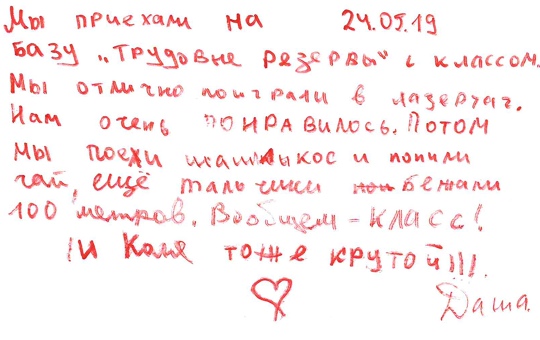 Мы приехали на 24.05.19
базу „Трудовне резервы“ с классом.
Мы отлично поиграли в лазертаг.
Нам очень понравилось. Потом
мы поехи шашлыкос и попили
чай, ещё мальчики бежали
100 метров. Вообщем - класс!
!И Коля тоже крутой!!!
Даша.